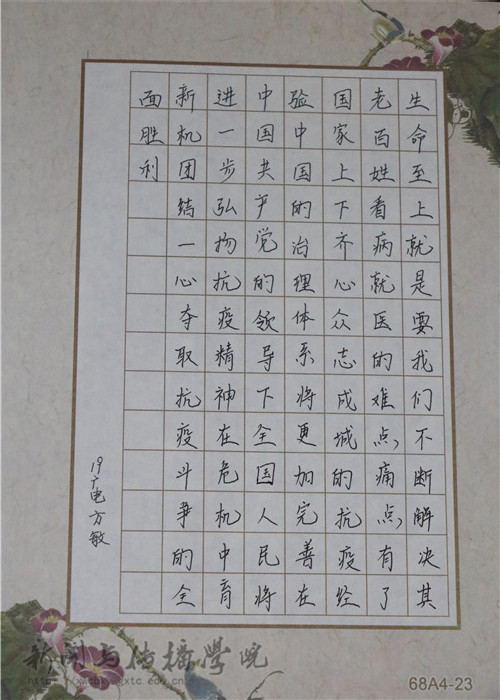 生命至上就是要我们不断解决其
老百姓看病就医的难点,痛点,有了
国家上下齐心众志成城的抗疫经
验中国的治理体系将更加完善在
中国共产党的领导下全国人民将
进一步弘扬抗疫精神在危机中育
新机团结一心夺取抗疫斗争的全
面胜利
19广电方敏
新闻与传播学院
68A4-23